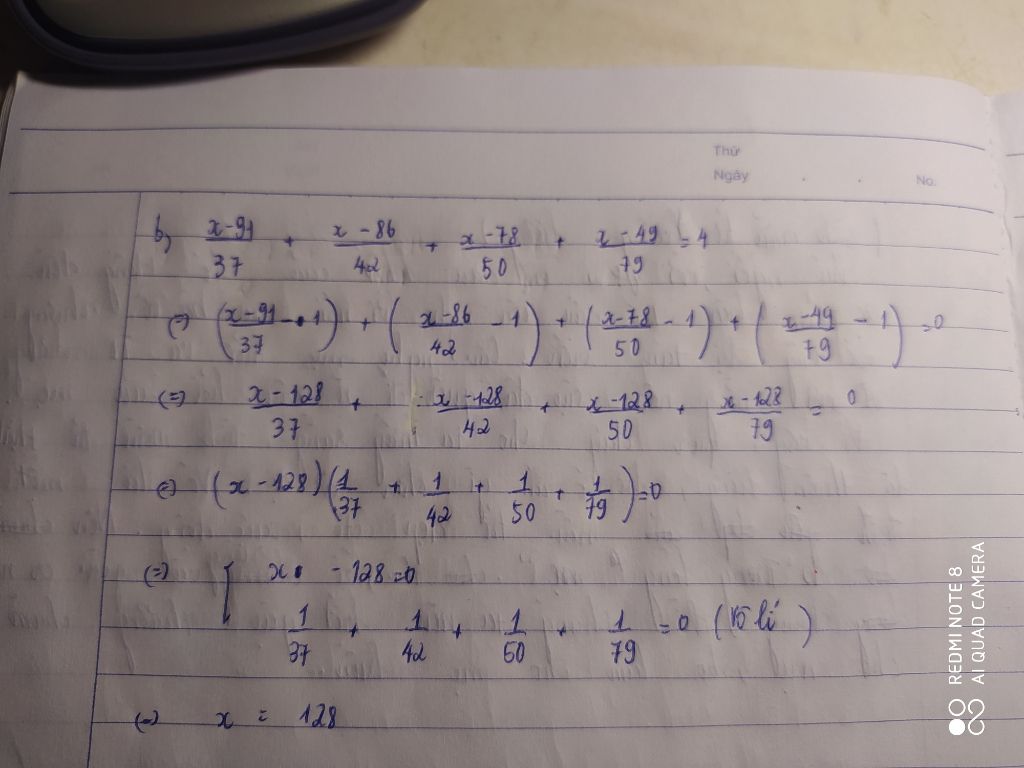 Thứ
Ngày No.
b) (x-91)/37 + (x-86)/42 + (x-78)/50 + (x-49)/79 = 4
(=) ((x-91)/37 - 1) + ((x-86)/42 - 1) + ((x-78)/50 - 1) + ((x-49)/79 - 1) = 0
(=) (x-128)/37 + (x-128)/42 + (x-128)/50 + (x-128)/79 = 0
(=) (x-128)(1/37 + 1/42 + 1/50 + 1/79) = 0
(=) [ x - 128 = 0
1/37 + 1/42 + 1/50 + 1/79 = 0 (Vô lí)
(=) x = 128
REDMI NOTE 8
AI QUAD CAMERA